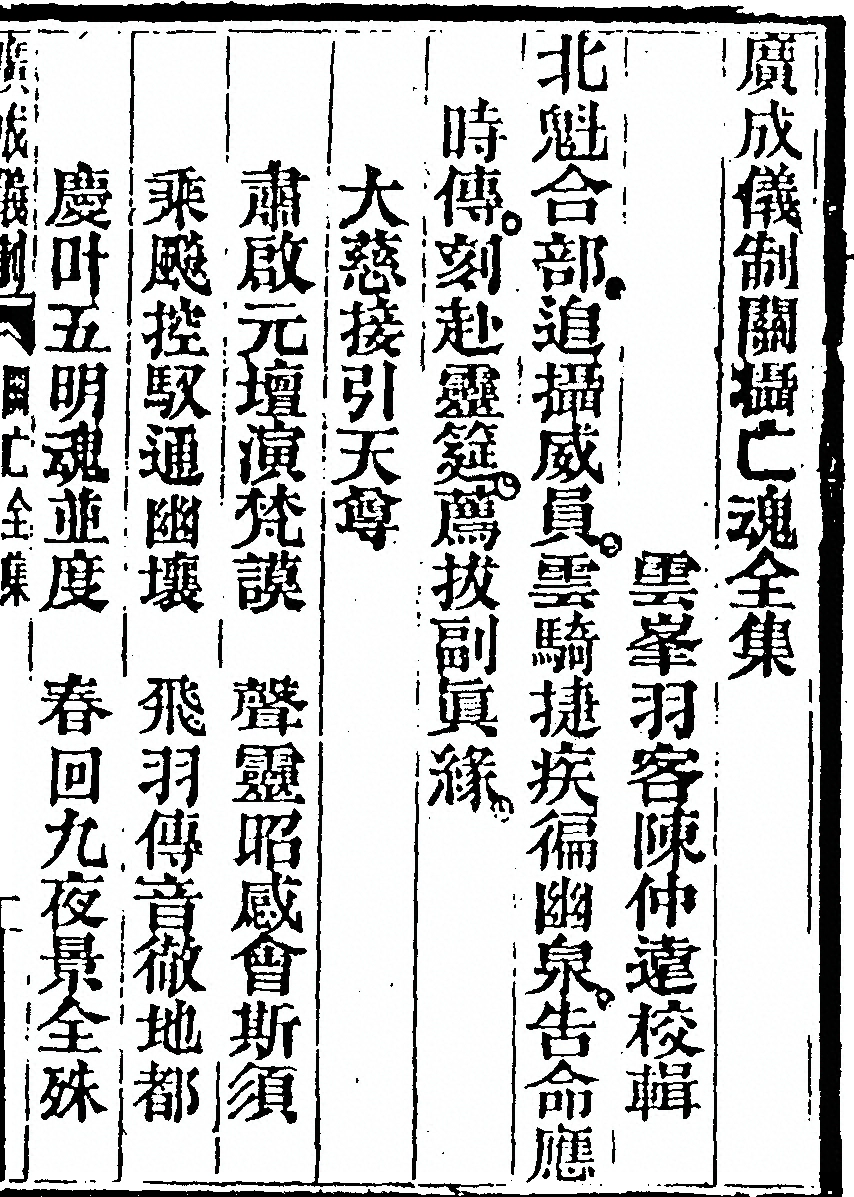 廣成儀制關攝亡魂全集
雲峯羽客陳仲遠校輯
北魁合部追攝威員雲騎捷疾徧幽泉告命應
時傳刻赴靈筵薦拔副眞緣
大慈接引天尊
肅啟元壇演梵謨　聲靈昭感會斯須
乘飈控馭通幽壤　飛羽傳音徹地都
慶叶五明魂並度　春回九夜景全殊
廣成儀制　關亡全集　一